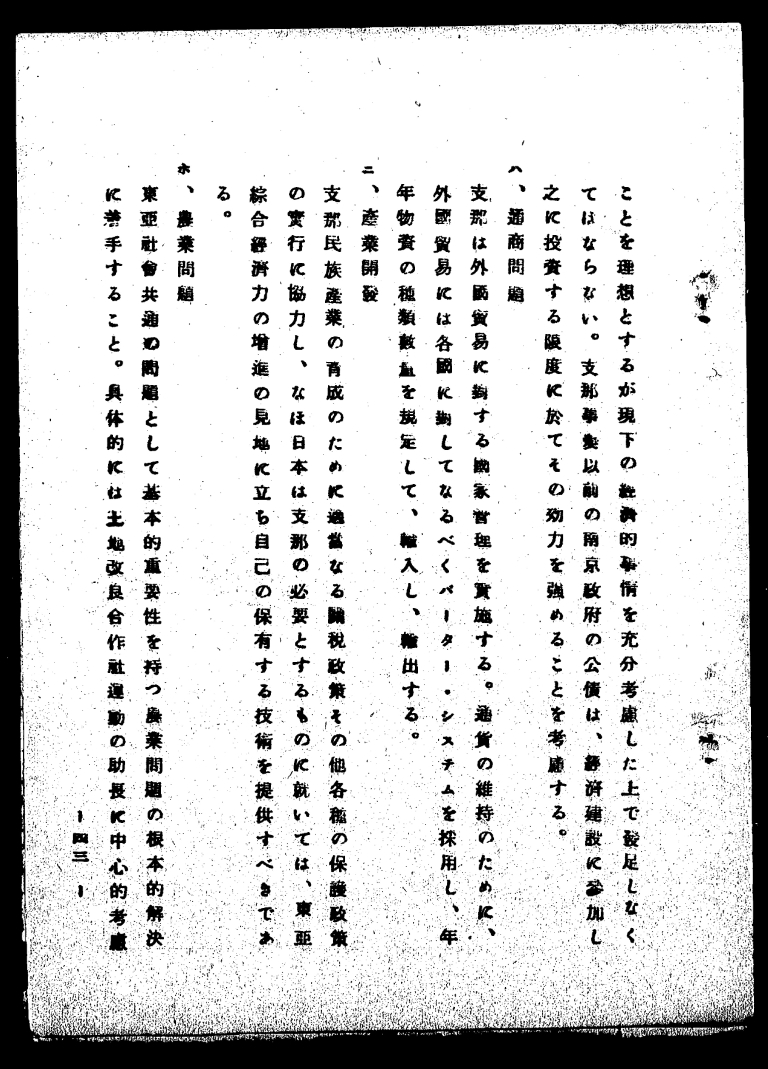 ことを理想とするが現下の經濟的事情を充分考慮した上で發足しなく
てはならない。支那事變以前の南京政府の公債は、經濟建設に參加し
之に投資する限度に於てその効力を強めることを考慮する。
ハ、通商問題
支那は外國貿易に對する國家管理を實施する。通貨の維持のために、
外國貿易には各國に對してなるべくバーター・システムを採用し、年
年物資の種類數量を規定して、輸入し、輸出する。
ニ、產業開發
支那民族產業の育成のために適當なる關稅政策その他各種の保護政策
の實行に協力し、なほ日本は支那の必要とするものに就いては、東亞
綜合經濟力の增進の見地に立ち自己の保有する技術を提供すべきであ
る。
ホ、農業問題
東亞社會共通の問題として基本的重要性を持つ農業問題の根本的解決
に著手すること。具体的には土地改良合作社運動の助長に中心的考慮
ー四三ー